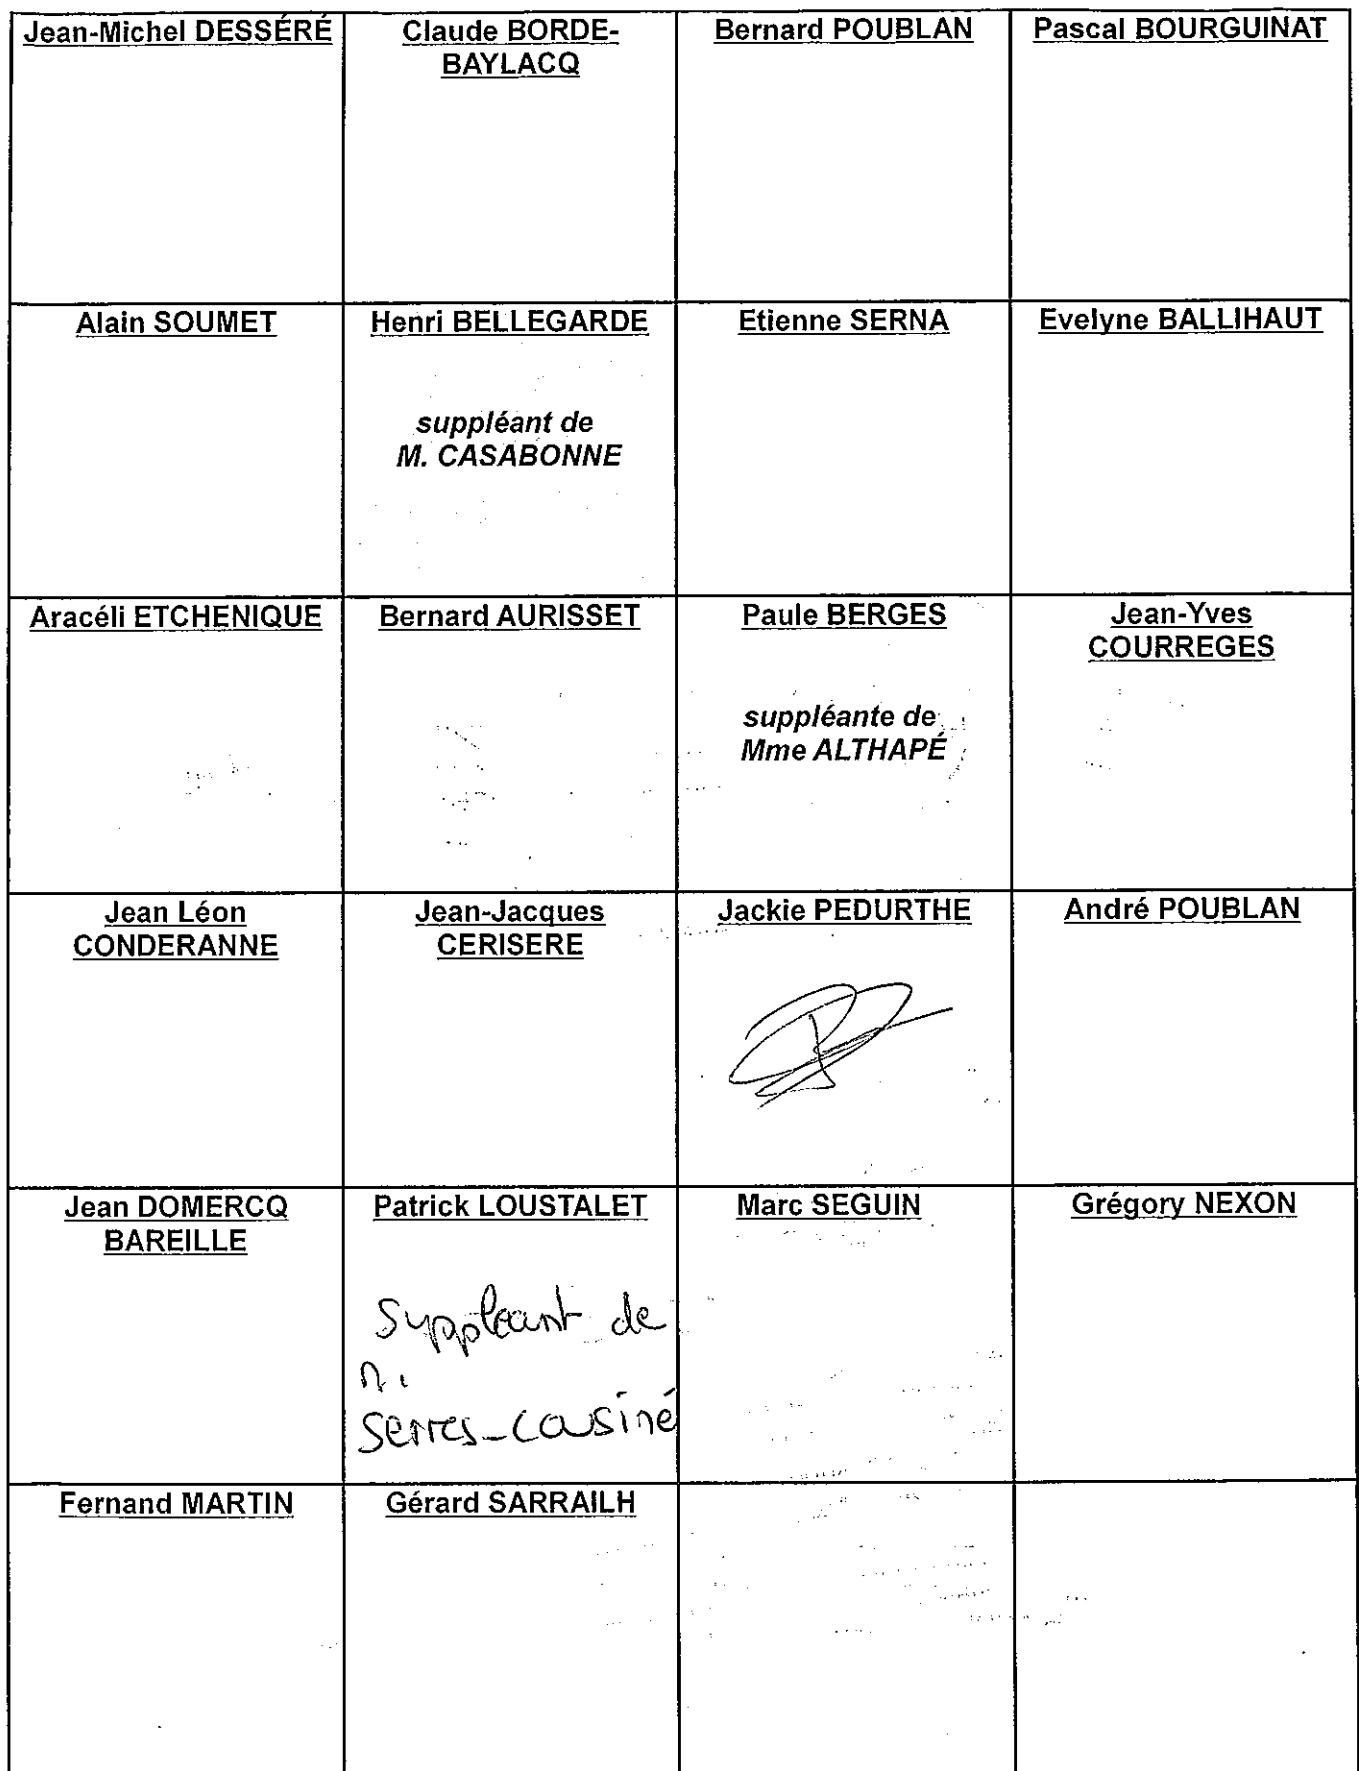 Jean-Michel DESSÉRÉ
Claude BORDE-
BAYLACQ
Bernard POUBLAN
Pascal BOURGUINAT
Alain SOUMET
Henri BELLEGARDE
suppléant de
M. CASABONNE
Etienne SERNA
Evelyne BALLIHAUT
Aracéli ETCHENIQUE
Bernard AURISSET
Paule BERGES
suppléante de
Mme ALTHAPÉ
Jean-Yves
COURREGES
Jean Léon
CONDERANNE
Jean-Jacques
CERISERE
Jackie PEDURTHE
André POUBLAN
Jean DOMERCQ
BAREILLE
Patrick LOUSTALET
Suppleant de
M.
Serres-Cousiné
Marc SEGUIN
Grégory NEXON
Fernand MARTIN
Gérard SARRAILH